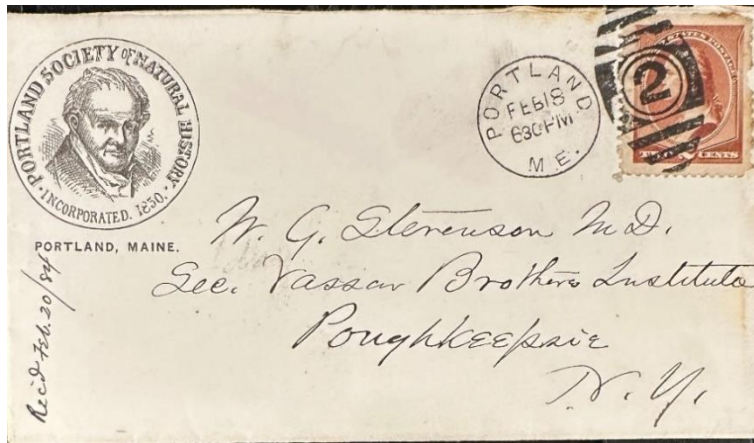 PORTLAND SOCIETY OF NATURAL HISTORY.
INCORPORATED. 1850.
PORTLAND, MAINE.
PORTLAND
FEB18
630PM
ME.
2
STATES POSTAGE
CENTS
W. G. Stevenson M.D.
Sec. Vassar Brothers Institute
Poughkeepsie
N.Y.
Rec'd Feb. 20/84